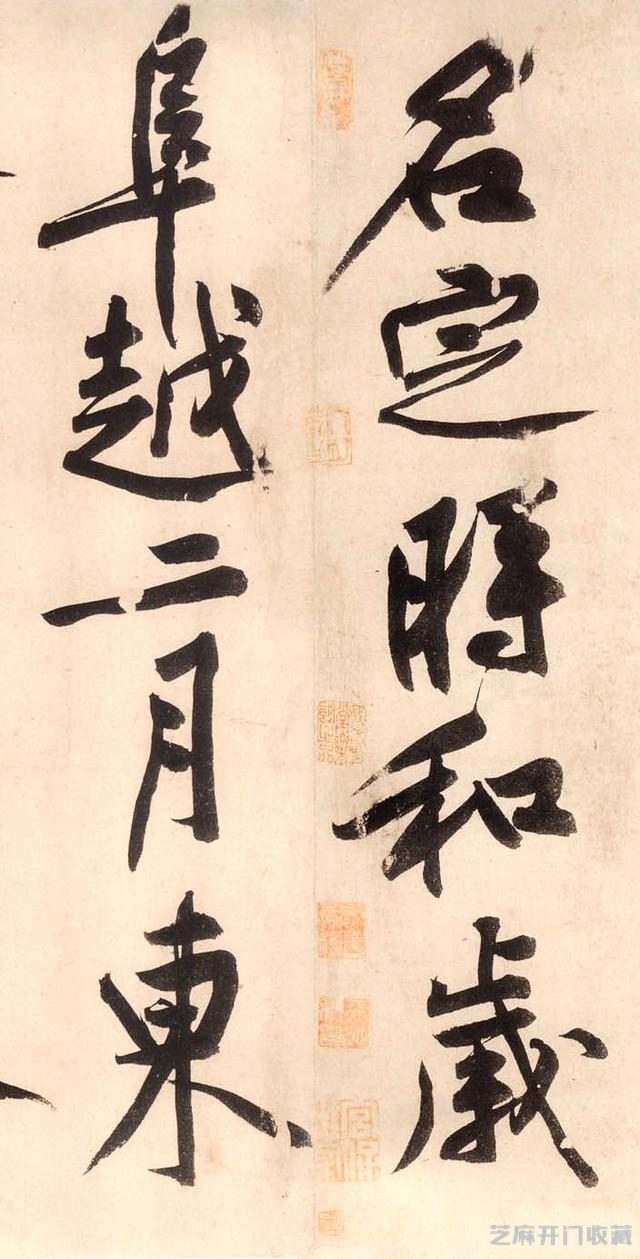 名定時和歲
阜越二月東
芝麻开门收藏